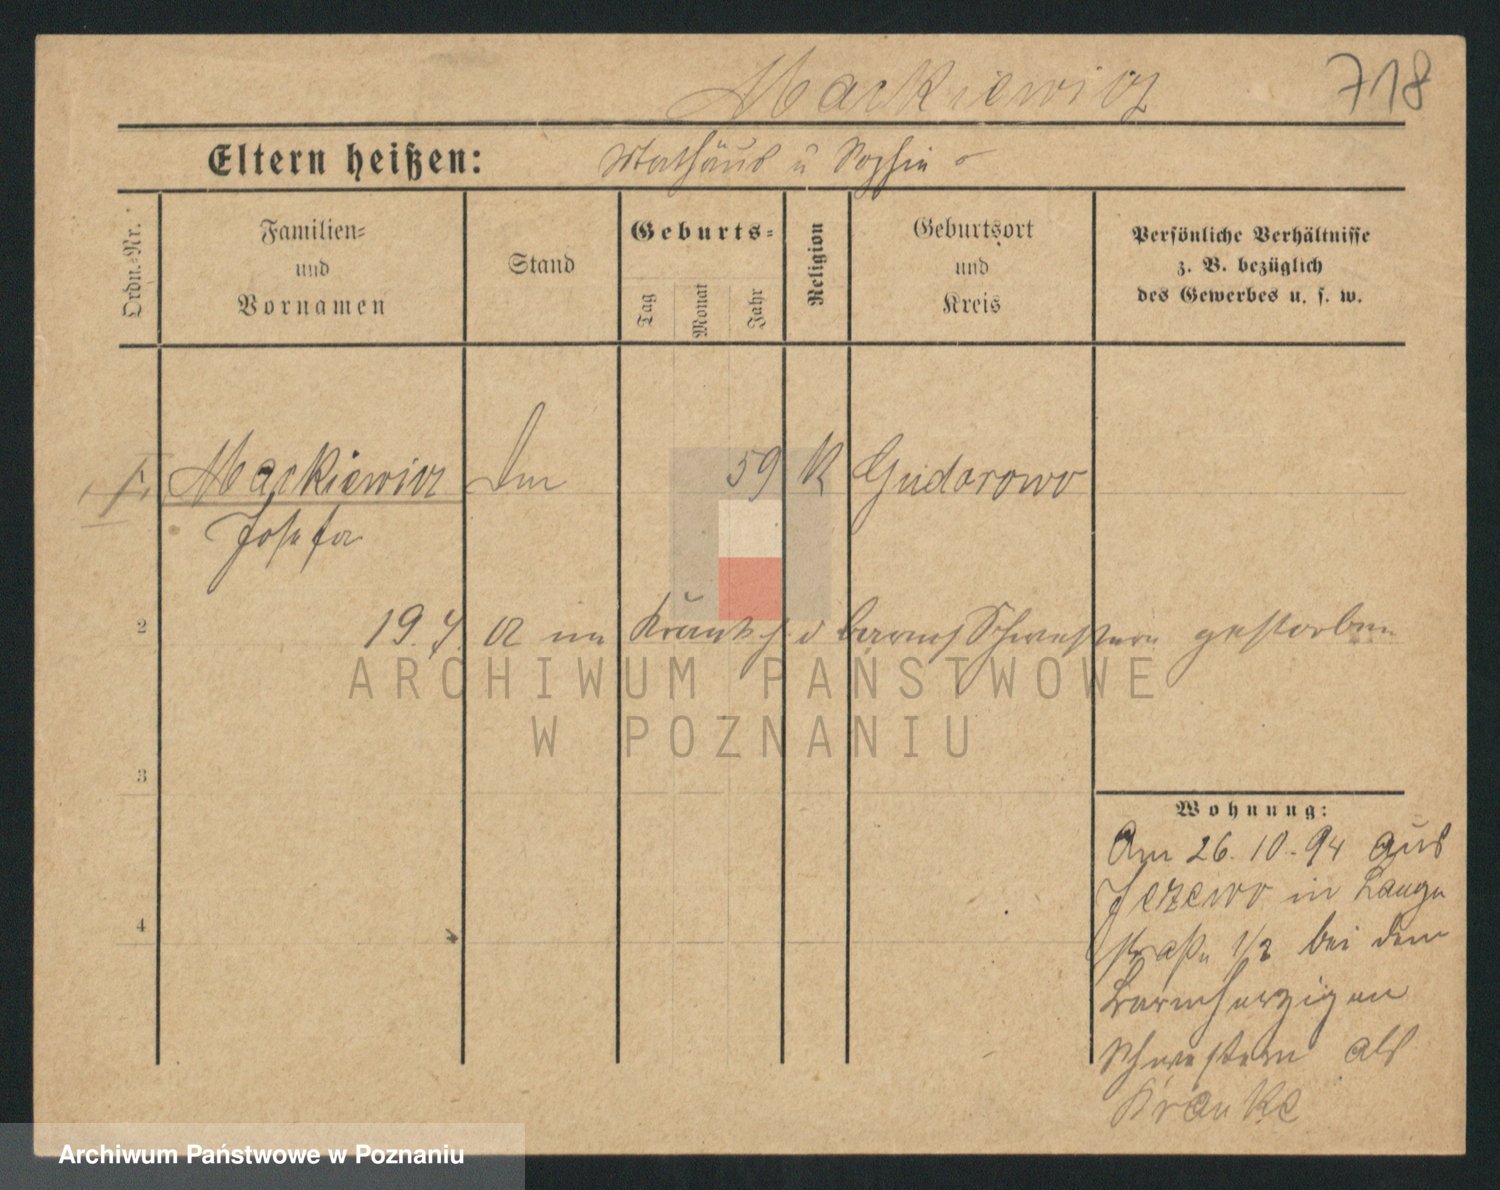 Mackiewicz 718
Eltern heißen: Mathäus u Sophie
Ordn.-Nr.
Familien-
und
Vornamen
Stand
Geburts-
Tag
Monat
Jahr
Religion
Geburtsort
und
Kreis
Persönliche Verhältnisse
z. B. bezüglich
des Gewerbes u. s. w.
Mackiewicz 59 K
Josefa
2
19. 7. 02 im Krankh. d barmh Schwestern gestorben
ARCHIWUM PAŃSTWOWE
W POZNANIU
3
4
Wohnung:
Am 26. 10. 94 aus
Jezewo in Lange
straße 1/2 bei den
Barmherzigen
Schwestern als
Kranke
Archiwum Państwowe w Poznaniu